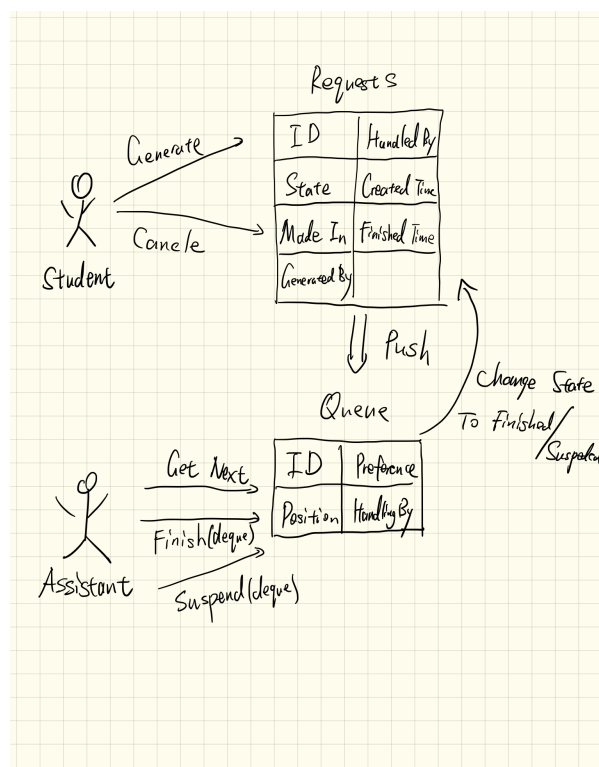 Requests
ID Handled By
State Created Time
Made In Finished Time
Generated By
Generate
Cancle
Student
Push
Change State
To Finished/
Queue
ID Preference
Position Handling By
Get Next
Finish(deque)
Suspend(deque)
Assistant